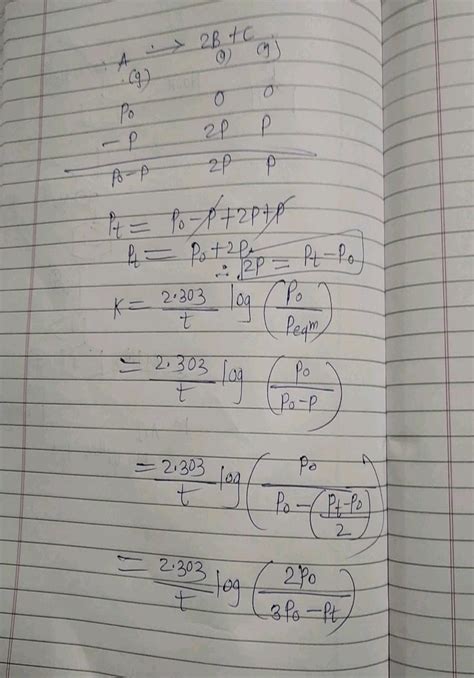 A → 2B + C
(g) (g) (g)
P₀ 0 0
- P 2P P
P₀-P 2P P
Pt = P₀ - P + 2P + P
Pt = P₀ + 2P.
∴ 2P = Pt - P₀
K = 2.303/t log (P₀/Peqm)
= 2.303/t log (P₀/(P₀-P))
= 2.303/t log (P₀/(P₀ - (Pt-P₀/2)))
= 2.303/t log (2P₀/(3P₀-Pt))